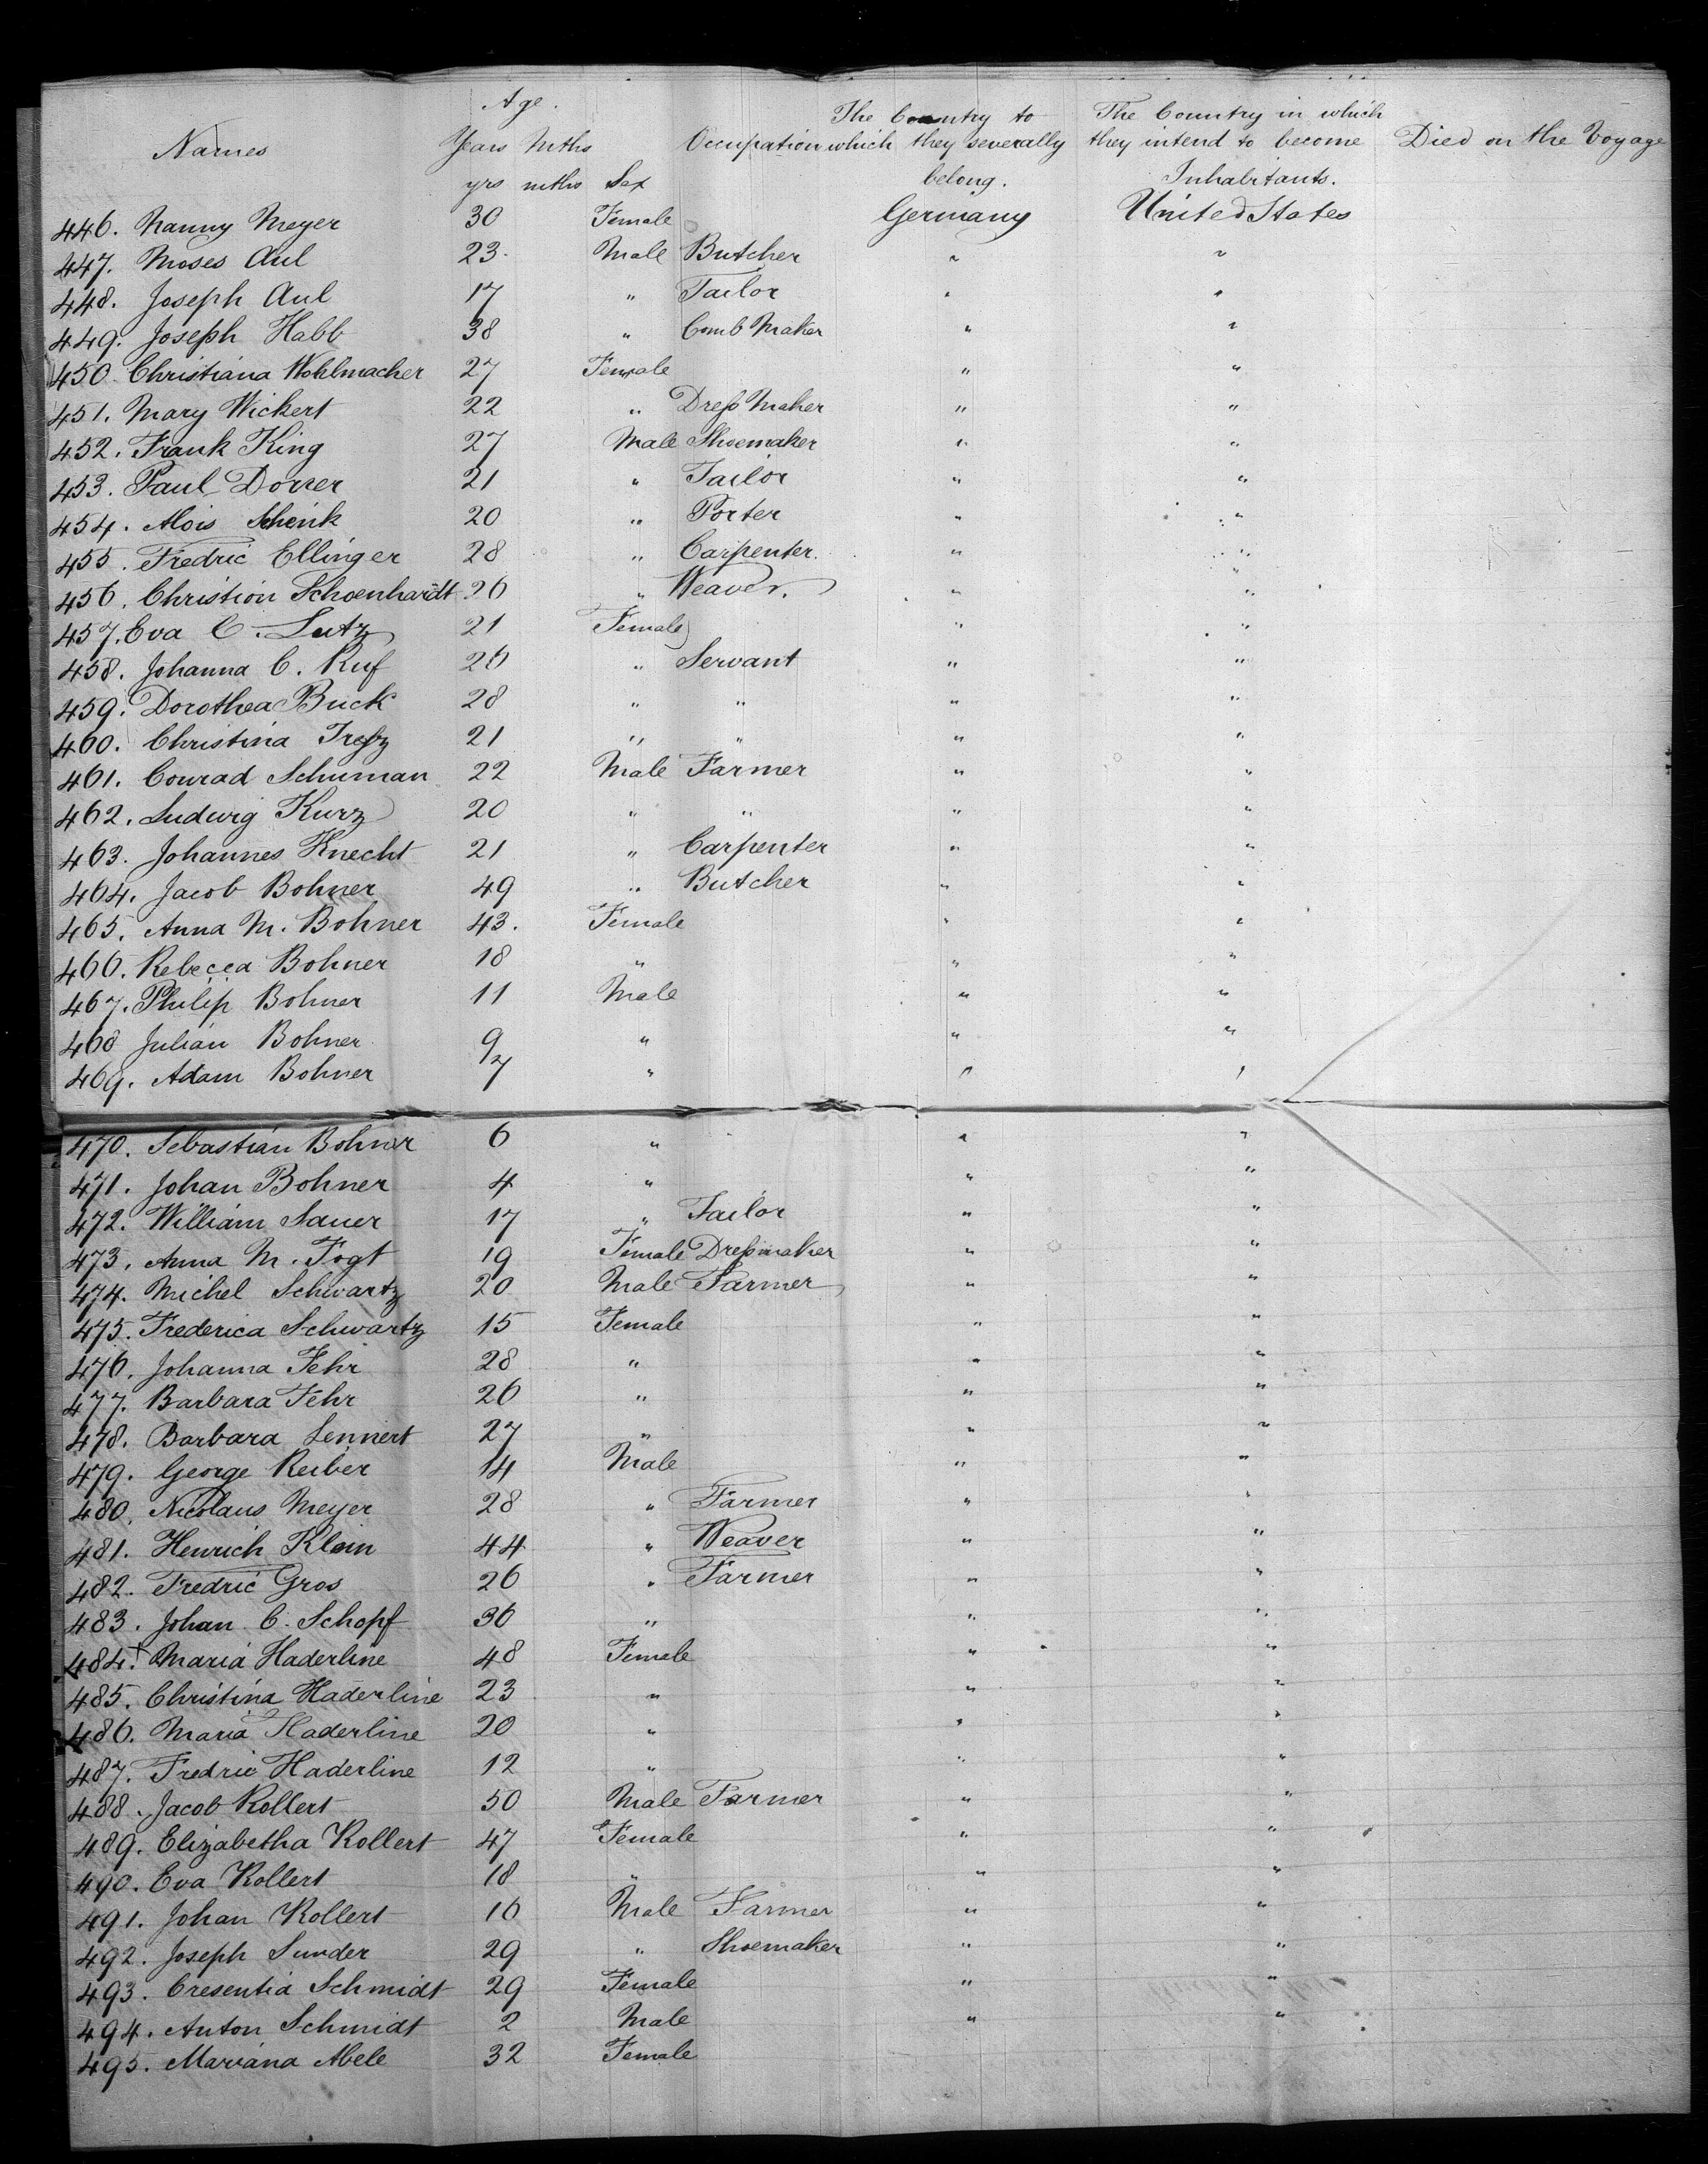 Age.
Names Years Mths Occupation The Country to which they severally belong. The Country in which they intend to become Inhabitants. Died on the Voyage
yrs mths Sex
446. Nanny Meyer 30 Female Germany United States
447. Moses Aul 23. Male Butcher " "
448. Joseph Aul 17 " Tailor " "
449. Joseph Habb 38 " Comb Maker " "
450. Christiana Wohlmacher 27 Female " "
451. Mary Wickert 22 " Dress Maker " "
452. Frank King 27 Male Shoemaker " "
453. Paul Dorrer 21 " Tailor " "
454. Alois Schenk 20 " Porter " "
455. Fredric Ellinger 28 " Carpenter. " "
456. Christion Schoenhardt 26 " Weaver. " "
457. Eva C. Lutz 21 Female " "
458. Johanna C. Ruf 26 " Servant " "
459. Dorothea Buck 28 " " " "
460. Christina 21 " " " "
461. Conrad Schuman 22 Male Farmer " "
462. Ludwig Kurz 20 " " " "
463. Johannes Knecht 21 " Carpenter " "
464. Jacob Bohner 49 " Butcher " "
465. Anna M. Bohner 43. Female " "
466. Rebecca Bohner 18 " " "
467. Philip Bohner 11 Male " "
468 Julian Bohner 9 " " "
469. Adam Bohner 7 " " "
470. Sebastian Bohner 6 " " "
471. Johan Bohner 4 " " "
472. William Sauer 17 " Tailor " "
473. Anna M. Fogt 19 Female Dressmaker " "
474. Michel Schwartz 20 Male Farmer " "
475. Frederica Schwartz 15 Female " "
476. Johanna Fehr 28 " " "
477. Barbara Fehr 26 " " "
478. Barbara Lennert 27 " " "
479. George Reiber 14 Male " "
480. Nicolaus Meyer 28 " Farmer " "
481. Henrich Klein 44 " Weaver " "
482. Fredric Gros 26 " Farmer " "
483. Johan C. Schopf 36 " " "
484. Maria Haderline 48 Female " "
485. Christina Haderline 23 " " "
486. Maria Haderline 20 " " "
487. Fredric Haderline 12 " " "
488. Jacob Kollert 50 Male Farmer " "
489. Elizabetha Kollert 47 Female " "
490. Eva Kollert 18 " " "
491. Johan Kollert 16 Male Farmer " "
492. Joseph Sunder 29 " Shoemaker " "
493. Cresentia Schmidt 29 Female " "
494. Anton Schmidt 2 Male " "
495. Mariana Abele 32 Female